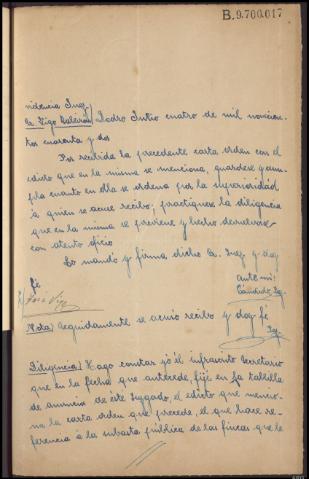 B.9.700.017
videncia Juez
Sr. Vigo Valeiras Padro Julio cuatro de mil novecien-
tos cuarenta y dos
Por recibida la precedente carta orden con el
edicto que en la misma se menciona, guardese y cum-
pla cuanto en ella se ordena por la superioridad
á quien se acuse recibo, practiquese la diligencia
que en la misma se previene y hecho devuelvase
con atento oficio
Lo mandó y firma dicho Sr. Juez y doy
fé
ante mi:
José Vigo
Candido
Nota Seguidamente se acusó recibo y doy fé
Diligencia Hago constar yó el infrascrito Secretario
que en la fecha que antecede, fijé en la tablilla
de anuncios de este Juzgado, el edicto que mencio-
na la carta orden que precede, el que hace re-
ferencia á la subasta pública de las fincas que le